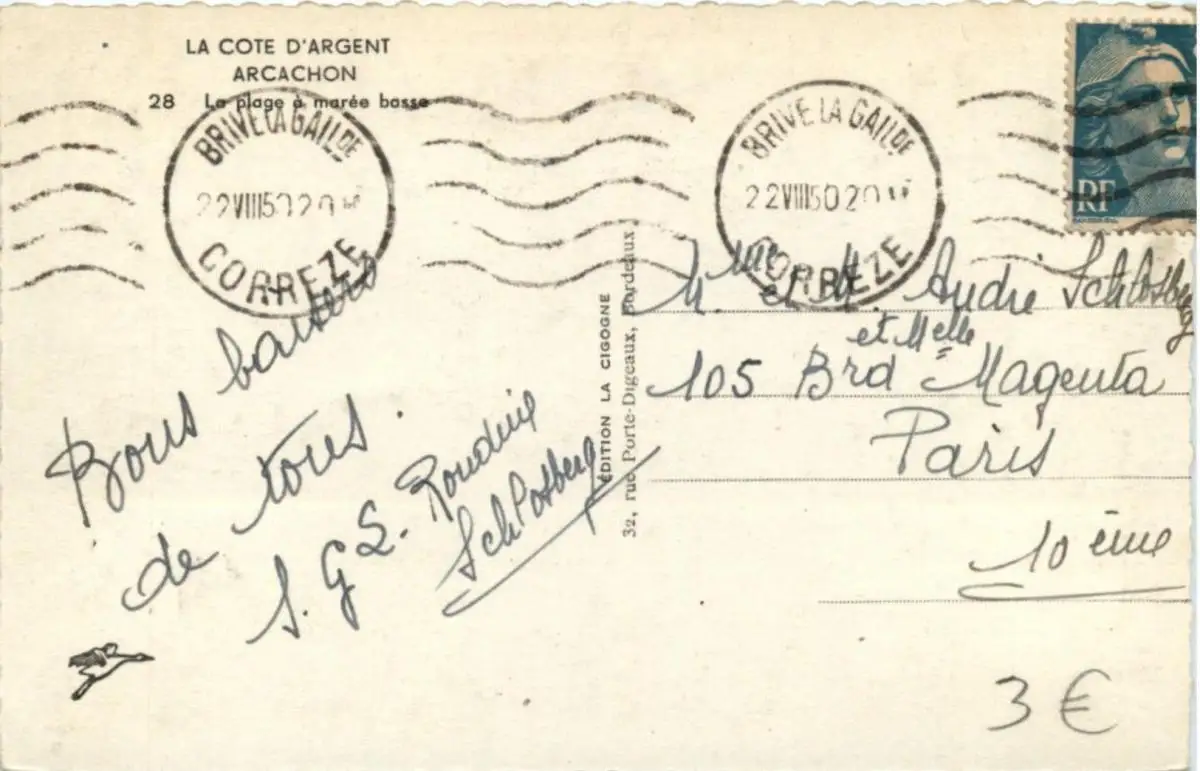 LA COTE D'ARGENT
ARCACHON
28 La plage à marée basse
BRIVE LA GAILDE
22 VIII 50 20
CORREZE
BRIVE LA GAILDE
22 VIII 50 20
CORREZE
RF
Bons baisers
de tous.
S. G
Schlosberg
ÉDITION LA CIGOGNE
32, rue Porte-Digeaux, Bordeaux
Mme et M. André Schlosberg
et Melle
105 Brd Magenta
Paris
10 ème
3 €